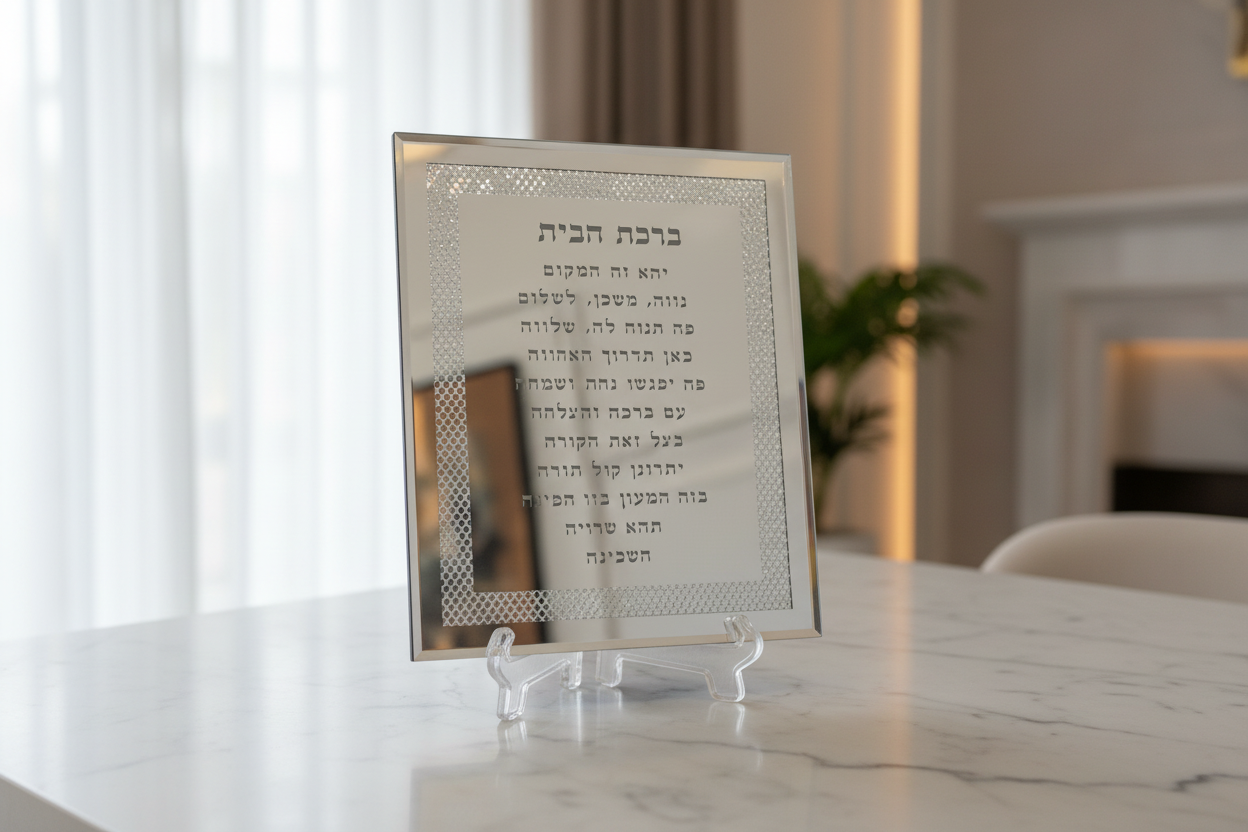 ברכת הבית
יהא זה המקום
נווה, משכן, לשלום
פה תנוח לה, שלווה
כאן תדרוך האחווה
פה יפגשו נחת ושמחה
עם ברכה והצלחה
בצל זאת הקורה
יתרונן קול תורה
בזה המעון בזו הפינה
תהא שרויה
השכינה